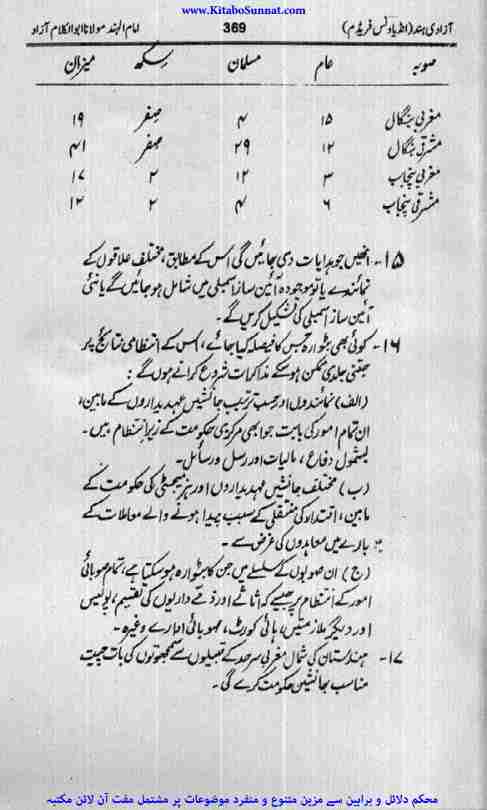 www.KitaboSunnat.com
آزادی ہند (انڈیا ونس فریڈم) 369 امام الہند مولانا ابوالکلام آزاد
صوبہ عام مسلمان سکھ میزان
مغربی بنگال ۱۵ ۴ صفر ۱۹
مشرقی بنگال ۱۲ ۲۹ صفر ۴۱
مغربی پنجاب ۳ ۱۲ ۲ ۱۷
مشرقی پنجاب ۶ ۴ ۲ ۱۲
۱۵- انھیں جو ہدایات دی جائیں گی اُس کے مطابق، مختلف علاقوں کے
نمائندے یا تو موجودہ آئین ساز اسمبلی میں شامل ہو جائیں گے یا نئی
آئین ساز اسمبلی کی تشکیل کریں گے۔
۱۶- کوئی بھی بٹوارہ جس کا فیصلہ کیا جائے، اس کے انتظامی نتائج پر
جتنی جلدی ممکن ہو سکے مذاکرات شروع کرانے ہوں گے:
(الف) نمائندوں اور حسب ترتیب جانشیں عہدیداروں کے مابین،
ان تمام امور کی بابت جو ابھی مرکزی حکومت کے زیر انتظام ہیں۔
بشمول دفاع، مالیات اور رسل و رسائل۔
(ب) مختلف جانشیں عہدیداروں اور ہز میجسٹی کی حکومت کے
مابین، اقتدار کی منتقلی کے سبب پیدا ہونے والے معاملات کے
بارے میں معاہدوں کی غرض سے۔
(ج) ان صوبوں کے سلسلے میں جن کا بٹوارہ ہو سکتا ہے، تمام صوبائی
امور کے انتظام پر جیسے کہ اثاثے اور ذمے داریوں کی تقسیم، پولیس
اور دیگر ملازمتیں، ہائی کورٹ، صوبائی ادارے وغیرہ۔
۱۷- ہندستان کی شمال مغربی سرحد کے قبیلوں سے سمجھوتوں کی بات چیت
مناسب جانشین حکومت کرے گی۔
محکم دلائل و براہین سے مزین متنوع و منفرد موضوعات پر مشتمل مفت آن لائن مکتبہ